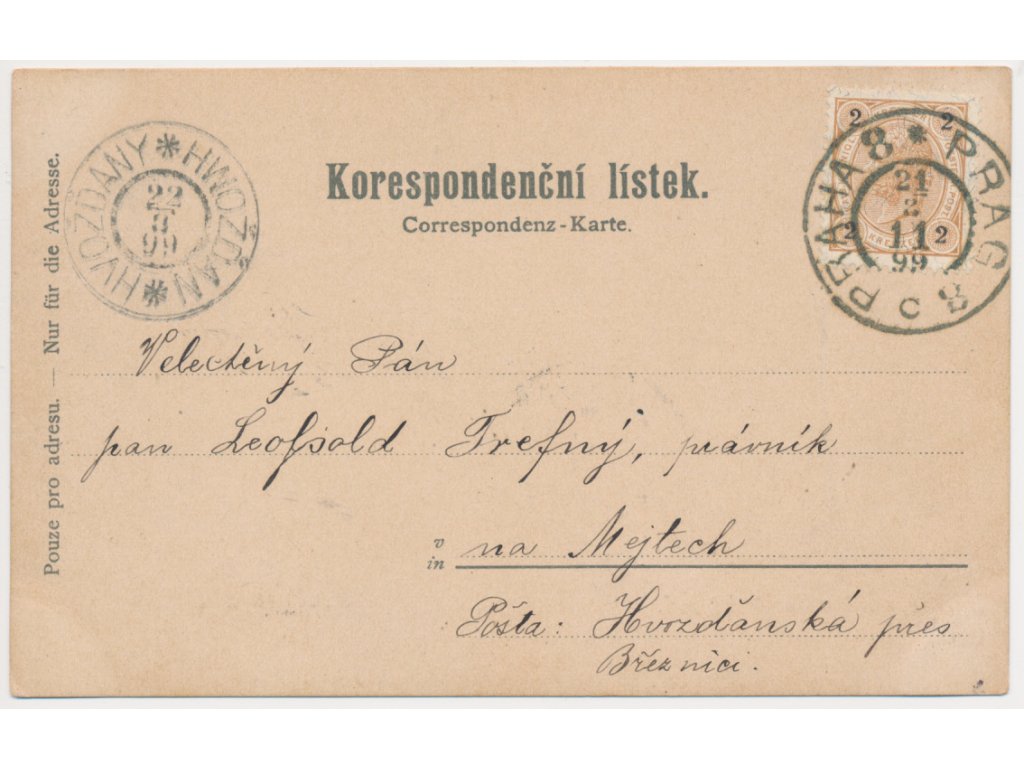 Korespondenční lístek.
Correspondenz-Karte.
Pouze pro adresu. — Nur für die Adresse.
HVOŽĎANY * HWOŽĎAN *
22
99
PRAHA 8 * PRAG 8
21
11
99
C
2 2
2 2
Velectěný Pán
pan Leopold Trefný, právník
v
in
na Mejtech
Pošta: Hvozďanská přes
Březnici.